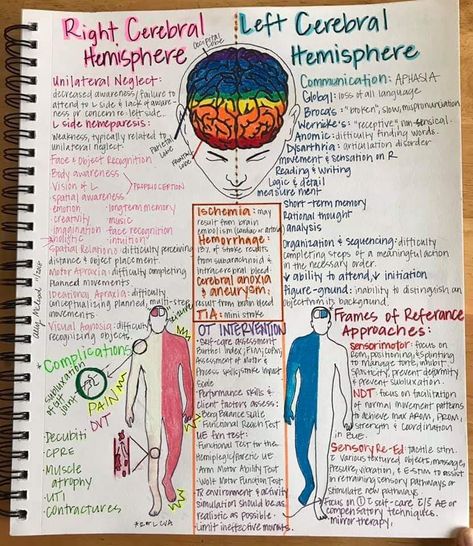 Right Cerebral
Hemisphere
Unilateral Neglect:
decreased awareness/failure to
attend to L side & lack of aware-
ness or concern to left side.
L side hemeparesis:
weakness, typically related to
unilateral neglect.
Face & Object Recognition
Body awareness
Vision of L
spatial awareness
PROPRIOCEPTION
emotion
creativity
imagination
holistic
long-term memory
music
face recognition
intuition
Spatial Relations: difficulty perceiving
distance & object placement.
Motor Apraxia: difficulty completing
planned movements
Ideational Apraxia: difficulty
conceptualizing planned, multi-step
movements.
Visual Agnosia: difficulty
recognizing objects.
Complications
subluxation
of GH
joint
PAIN
DVT
seizure
Decubiti
CPRE
Muscle
atrophy
UTI
contractures
* R MCA CVA
occipital
lobe
Parietal
lobe
Frontal
lobe
Left Cerebral
Hemisphere
Communication: APHASIA
Global: loss of all language
Brocas: "broken", slow, mispronunciation
Wernicke's: "receptive", non-sensical.
Anomic: difficulty finding words
Dysarthria: articulation disorder
movement & sensation on R
Reading & writing
Logic & detail
measurement
short-term memory
Rational thought
analysis
Organization & sequencing: difficulty
completing steps of a meaningful action
in the necessary order.
↓ ability to attend, ↓ initiation
Figure-ground: inability to distinguish an
object from its background.
Ischemia: may
result from brain
embolism (cardiac or arterial)
Hemorrhage:
13% of stroke results
from subarachnoid &
intracerebral bleed
Cerebral anoxia
& aneurysm:
result from brain bleed
TIA: mini stroke
OT INTERVENTION
• Self-care assessment
Barthel Index, FIM,
Assessment of Motor &
Process Skills, Stroke Impact
Scale
• Performance skills &
client factors assess:
Berg Balance Scale
Functional Reach Test
• UE fxn test:
Functional Test for the
Hemiplegic/Paretic UE
Arm Motor Ability Test
Wolf Motor Function Test
Tx environment & activity
simulation should be as
realistic as possible.
Limit ineffective movmts.
Frames of Referance
Approaches:
Sensorimotor: focus on
ROM, positioning, & splinting
to manage tone, inhibit
spasticity, prevent deformity
& prevent subluxation.
NDT: focus on facilitation
of normal movement patterns
to achieve max AROM, PROM,
strength & coordination
in BUE.
Sensory Re-Ed: tactile stim.
c̄ various textured objects, massage,
pressure, vibration, & E-stim to assist
in retraining sensory pathways or
stimulate new pathways.
Focus on ① c̄ self-care c̄/s̄ AE or
compensatory techniques.
mirror therapy.